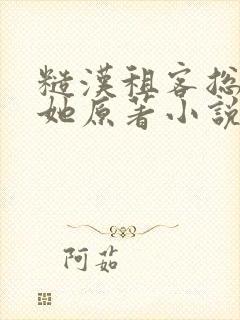 糙漢租客捴
她原著小說
阿茹